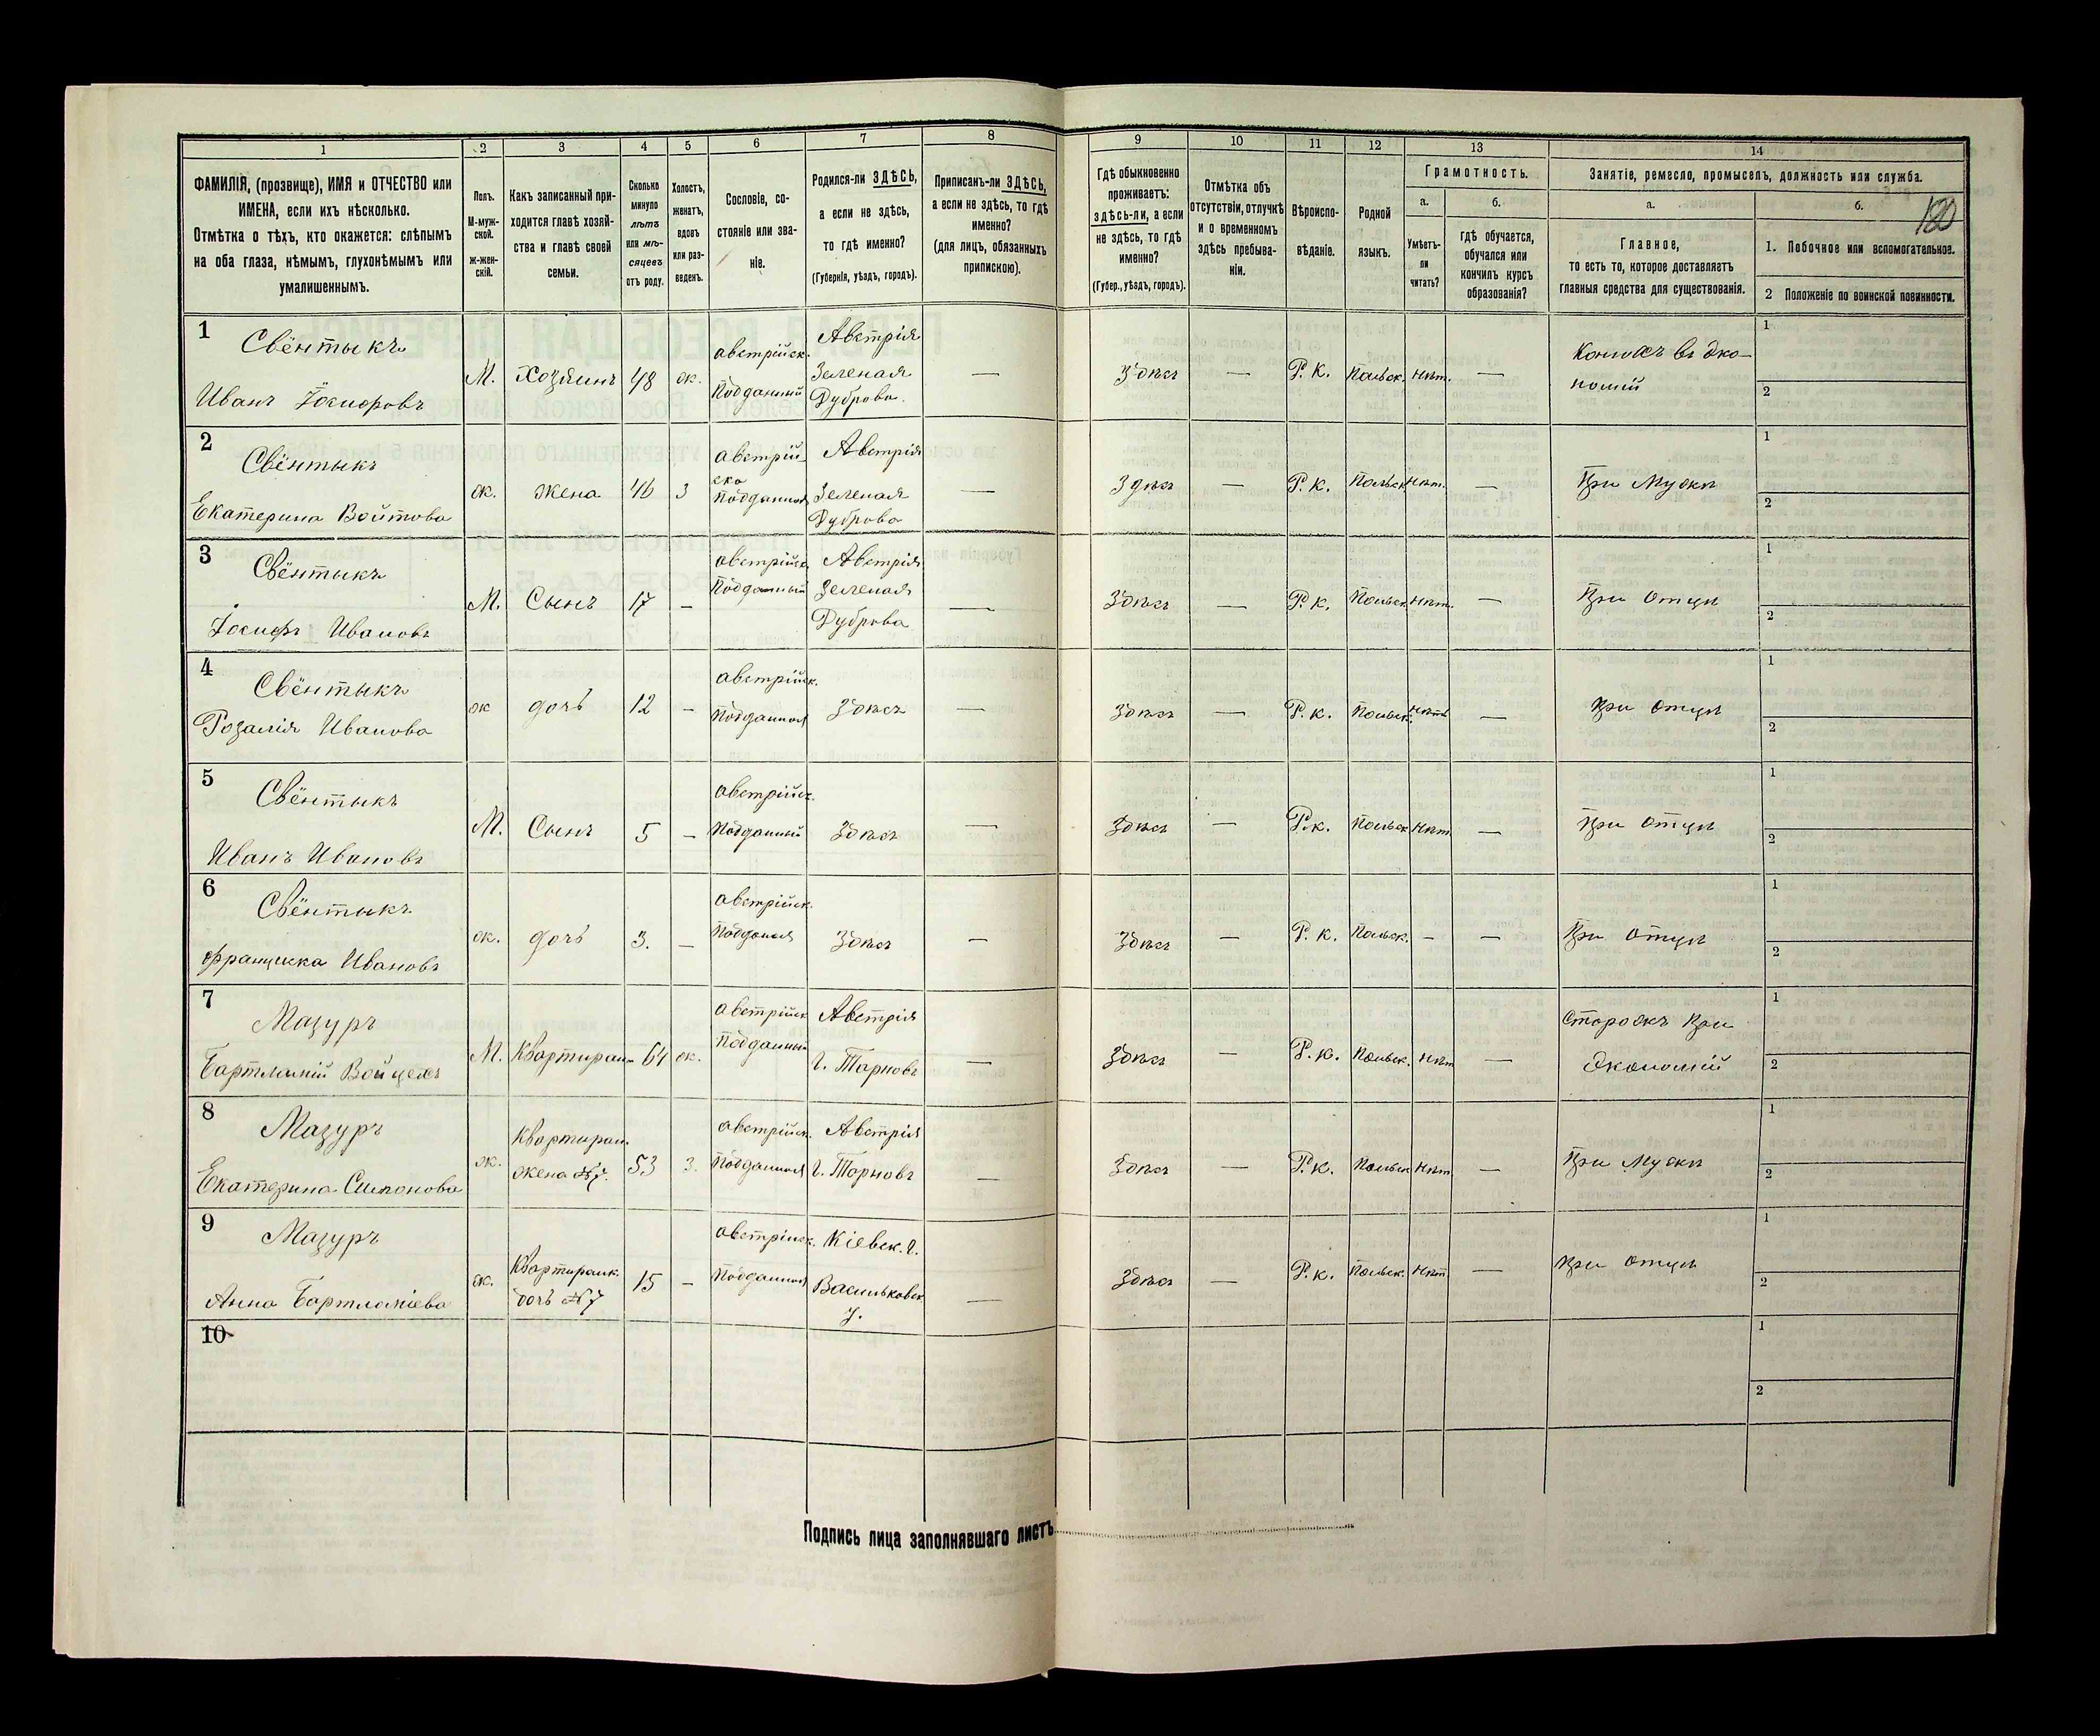 1 2 3 4 5 6 7 8 9 10 11 12 13 14
ФАМИЛІЯ, (прозвище), ИМЯ и ОТЧЕСТВО или
ИМЕНА, если ихъ нѣсколько.
Отмѣтка о тѣхъ, кто окажется: слѣпымъ
на оба глаза, нѣмымъ, глухонѣмымъ или
умалишеннымъ.
Полъ.
М-муж-
ской.
Ж-жен-
скій.
Какъ записанный при-
ходится главѣ хозяй-
ства и главѣ своей
семьи.
Сколько
минуло
лѣтъ
или мѣ-
сяцевъ
отъ роду.
Холостъ,
женатъ,
вдовъ
или раз-
веденъ.
Сословіе, со-
стояніе или зва-
ніе.
Родился-ли ЗДѢСЬ,
а если не здѣсь,
то гдѣ именно?
(Губернія, уѣздъ, городъ).
Приписанъ-ли ЗДѢСЬ,
а если не здѣсь, то гдѣ
именно?
(для лицъ, обязанныхъ
припискою).
Гдѣ обыкновенно
проживаетъ:
здѣсь-ли, а если
не здѣсь, то гдѣ
именно?
(Губер., уѣздъ, городъ).
Отмѣтка объ
отсутствіи, отлучкѣ
и о временномъ
здѣсь пребыва-
ніи.
Вѣроиспо-
вѣданіе.
Родной
языкъ.
Грамотность.
а.
Умѣетъ-
ли
читать?
б.
гдѣ обучается,
обучался или
кончилъ курсъ
образованія?
Занятіе, ремесло, промыселъ, должность или служба.
а.
Главное,
то есть то, которое доставляетъ
главныя средства для существованія.
б.
180
1. Побочное или вспомогательное.
2 Положеніе по воинской повинности.
1
Свёнтыкъ
Иванъ Іосифовъ
М. Хозяинъ 48 ж.
австрійск.
подданный
Австрія
Зеленая
Дуброва
—
Здѣсь — Р. К. Польск. нѣт. —
Конюхъ въ эко-
номіи
1
2
2
Свёнтыкъ
Екатерина Войтова
ж. жена 46 з
австрій-
ска
подданная
Австрія
Зеленая
Дуброва
—
Здѣсь — Р. К. Польск. нѣт. —
При Мужѣ
1
2
3
Свёнтыкъ
Іосифъ Ивановъ
М. Сынъ 17 –
австрійск.
подданный
Австрія
Зеленая
Дуброва
—
Здѣсь — Р. К. Польск. нѣт. —
При Отцѣ
1
2
4
Свёнтыкъ
Розалія Иванова
ж дочь 12 –
австрійск.
подданная
Здѣсь
—
Здѣсь — Р. К. Польск. нѣтъ —
При Отцѣ
1
2
5
Свёнтыкъ
Иванъ Ивановъ
М. Сынъ 5 –
австрійск.
подданный
Здѣсь
—
Здѣсь — Р. К. Польск нѣт. —
При Отцѣ
1
2
6
Свёнтыкъ
Франциска Ивановъ
ж. дочь 3. –
австрійск.
подданая
Здѣсь
—
Здѣсь — Р. К. Польск. – —
При Отцѣ
1
2
7
Мазуръ
Бартломій Войцехъ
М. Квартиран- 64 ж.
австрійск
подданный
Австрія
г. Тарновъ
—
Здѣсь — Р. К. Польск. нѣт —
Сторожъ При
Экономіи
1
2
8
Мазуръ
Екатерина Симонова
ж.
Квартиран.
жена №7.
53 з.
австрійск.
подданная
Австрія
г. Тарновъ
—
Здѣсь — Р. К. Польск нѣт. —
При Мужѣ
1
2
9
Мазуръ
Анна Бартломіева
ж.
Квартиранк.
дочь №7
15 –
австрійск.
подданная
Кіевск. г.
Васильковск.
у.
—
Здѣсь — Р. К. Польск. нѣт —
При Отцѣ
1
2
10
1
2
Подпись лица заполнявшаго листъ